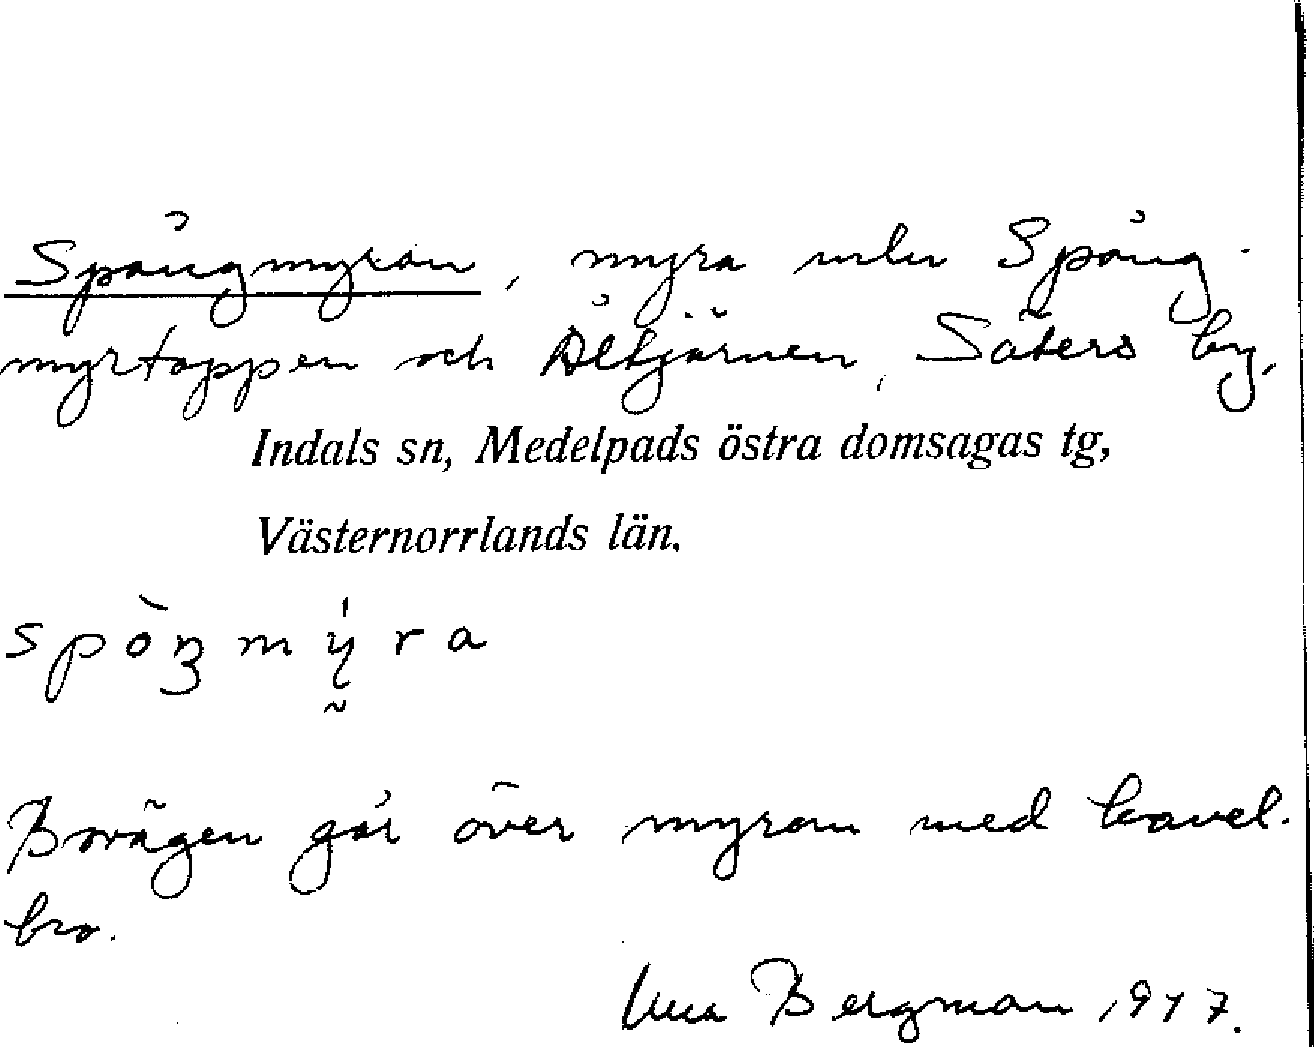 Spångmyran, myra mln Spång-
myrtoppen och Åltjärnen, Säters by,
Indals sn, Medelpads östra domsagas tg,
Västernorrlands län.
spòŋmýra
Bovägen går över myran med kavel-
bro.
Bergman 1947.